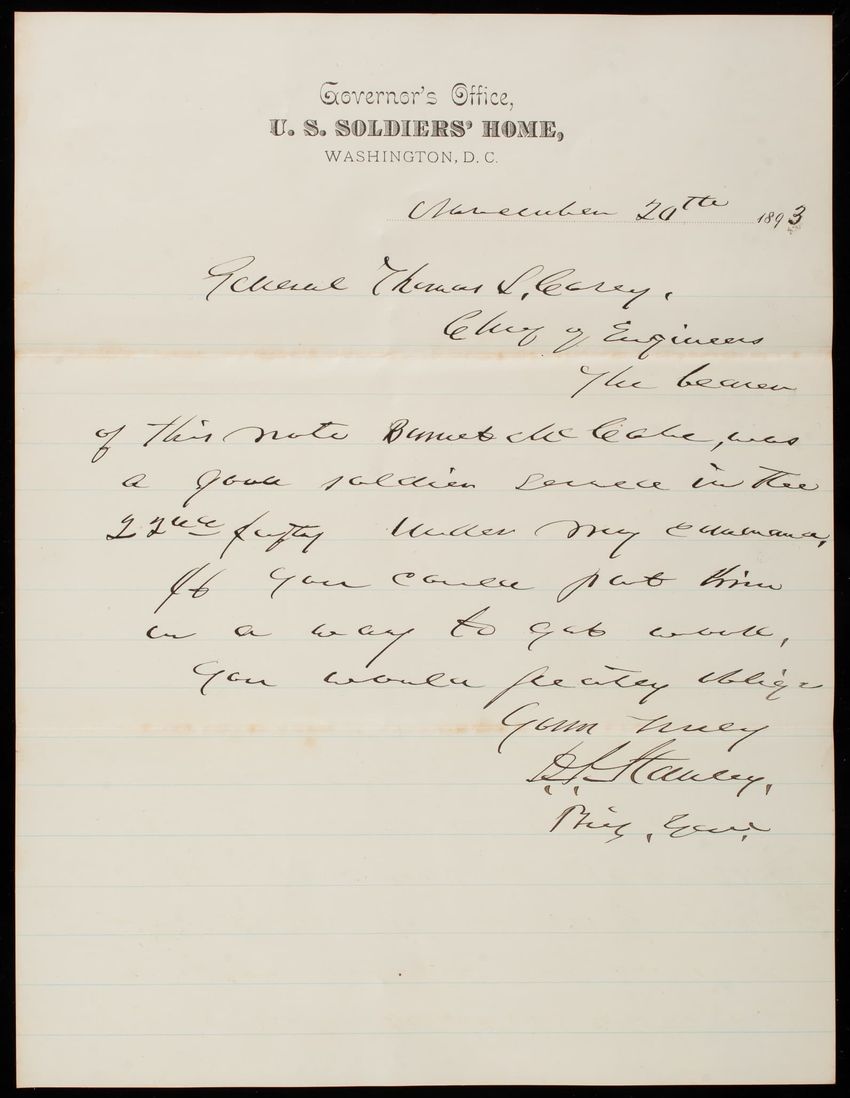 Governor's Office,
U. S. SOLDIERS' HOME,
WASHINGTON, D. C.
November 20th 1893
General Thomas L. Casey.
Chief of Engineers
The bearer
of this note Barnet McCabe, was
a good soldier served in the
22nd Infty under my command,
If you could put him
in a way to get work,
you would greatly oblige
Yours truly
D. S. Stanley,
Brig. Genl.